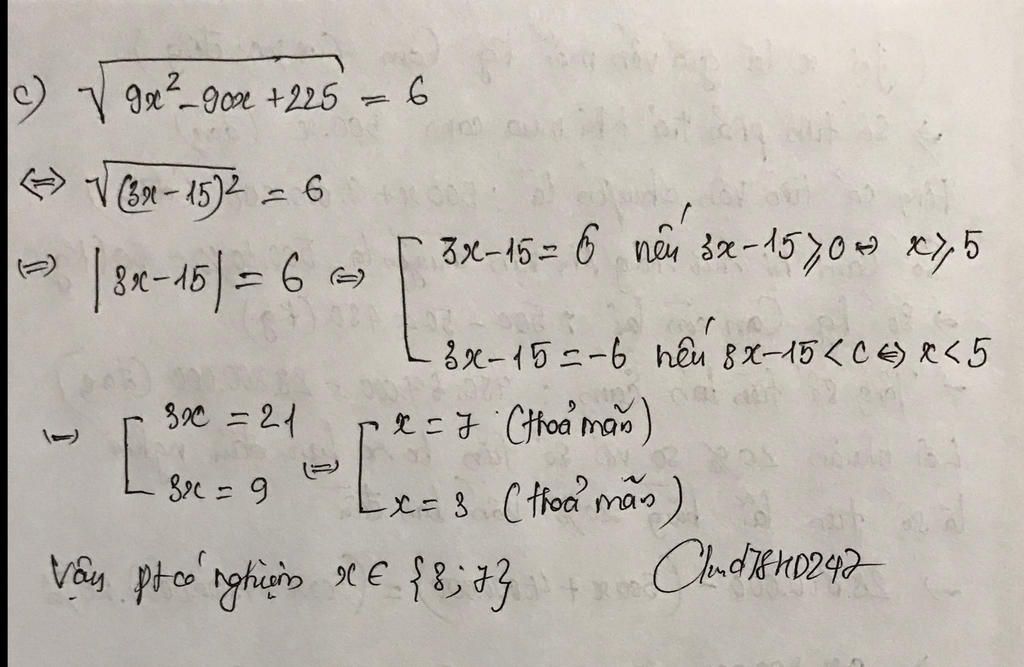 c) √(9x² - 90x + 225) = 6
⇔ √((3x - 15)²) = 6
⇔ |3x - 15| = 6 ⇔ [ 3x - 15 = 6 nếu 3x - 15 ⩾ 0 ⇔ x ⩾ 5
3x - 15 = -6 nếu 3x - 15 < 0 ⇔ x < 5
⇔ [ 3x = 21 ⇔ [ x = 7 (thoả mãn)
3x = 9 x = 3 (thoả mãn)
Vậy pt có nghiệm x ∈ {3; 7}